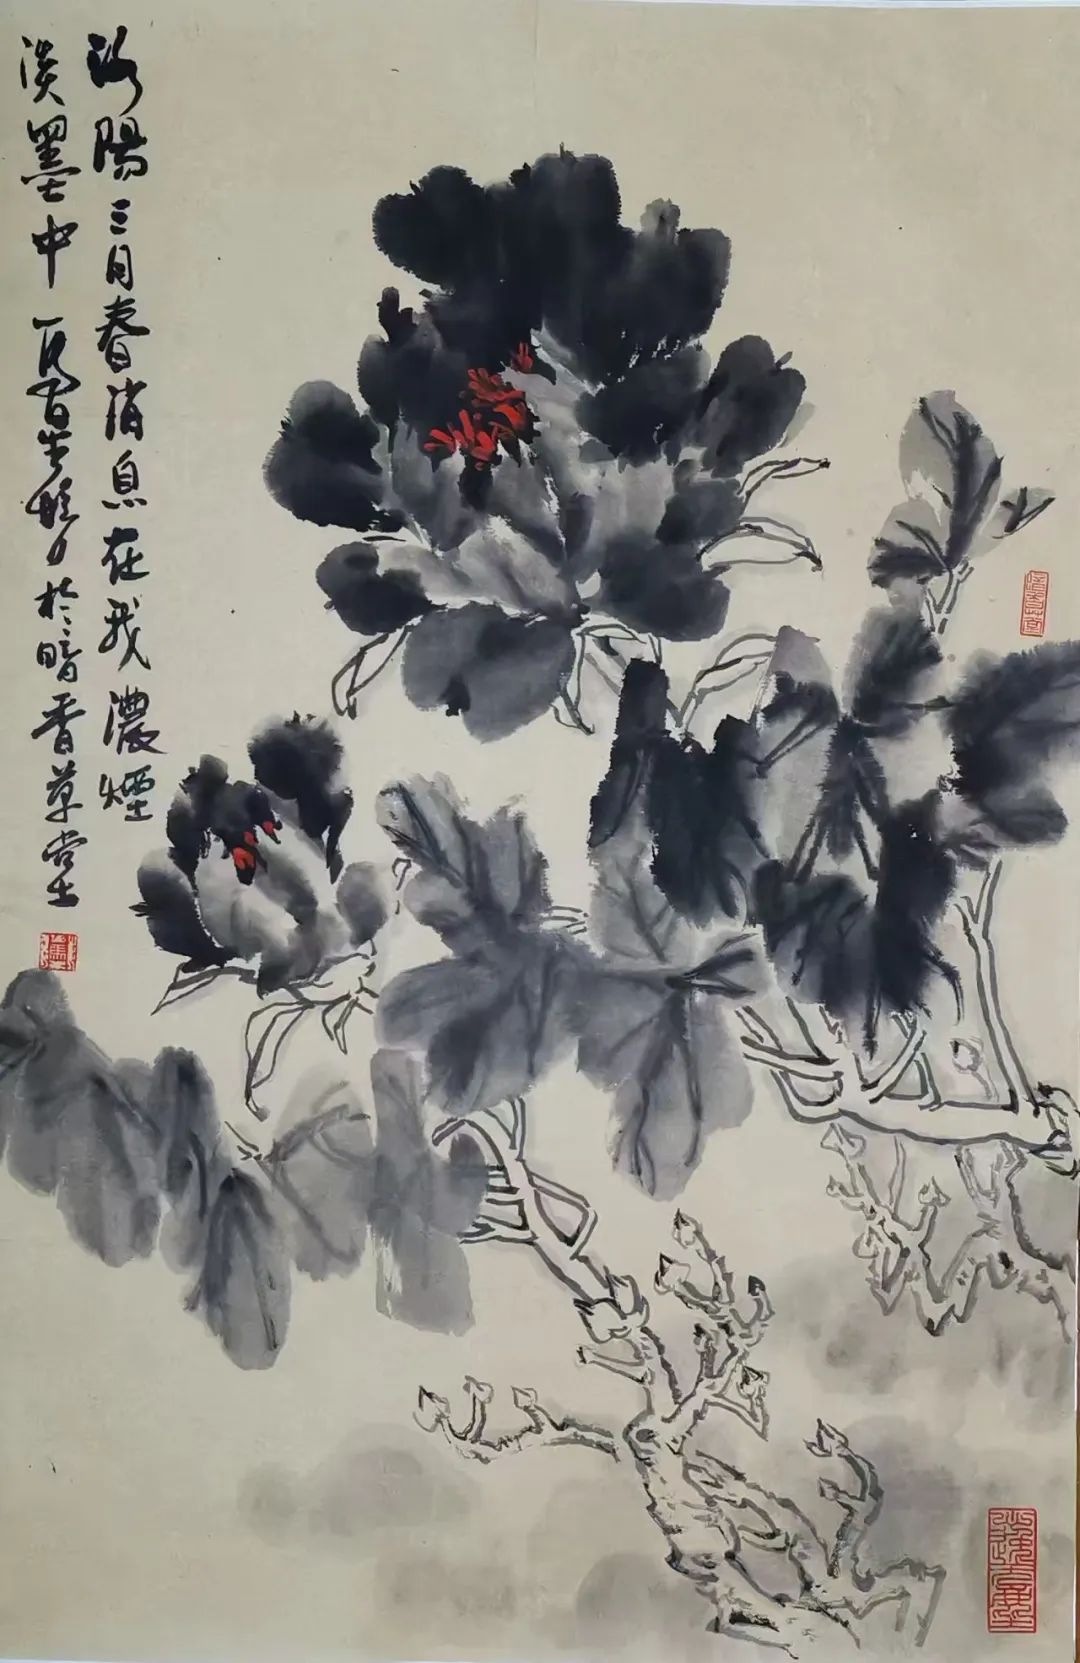 洛陽三月春消息在我濃煙
淡墨中 於暗香草堂